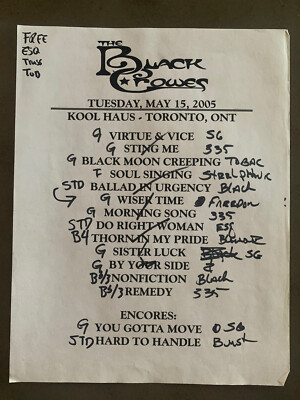 FREE
ESQ
TRUSS
TOD
THE
BLACK
CROWES
TUESDAY, MAY 15, 2005
KOOL HAUS - TORONTO, ONT
G VIRTUE & VICE SG
G STING ME 335
G BLACK MOON CREEPING TOBAC
F SOUL SINGING
STD BALLAD IN URGENCY BLACK
G WISER TIME FREEDOM
G MORNING SONG 335
STD DO RIGHT WOMAN
B4 THORN IN MY PRIDE
G SISTER LUCK SG
G BY YOUR SIDE
B5/3 NONFICTION BLACK
B5/3 REMEDY 335
ENCORES:
G YOU GOTTA MOVE SG
STD HARD TO HANDLE BURST